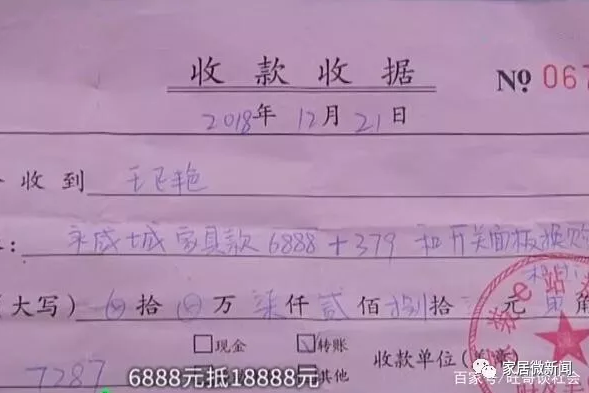 收款收据
No 067
2018年 12月 21日
收到 王飞艳
家具款 6888+379 和开关面板换购
(大写) 拾 万 柒仟 贰佰 捌拾 元 角
现金 转账
收款单位(
7287
其他
6888元抵18888元
家居微新闻
百家号/旺哥谈社会